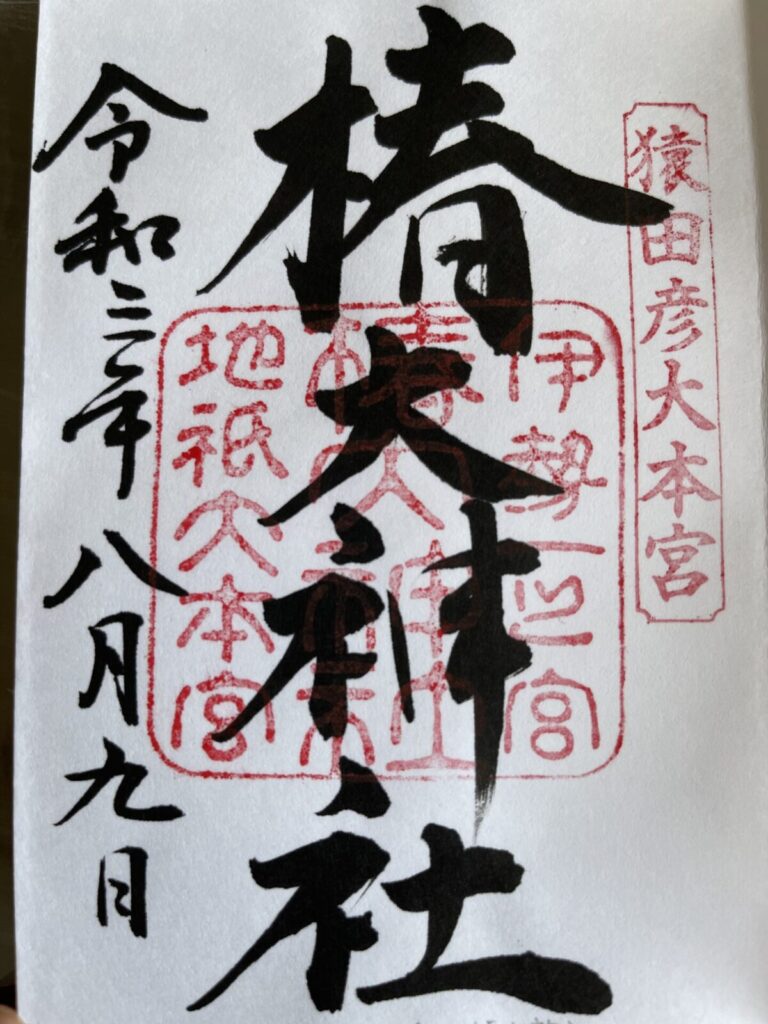 猿田彦大本宮
椿大神社
伊勢一之宮
椿大神社
地祇大本宮
令和三年八月九日